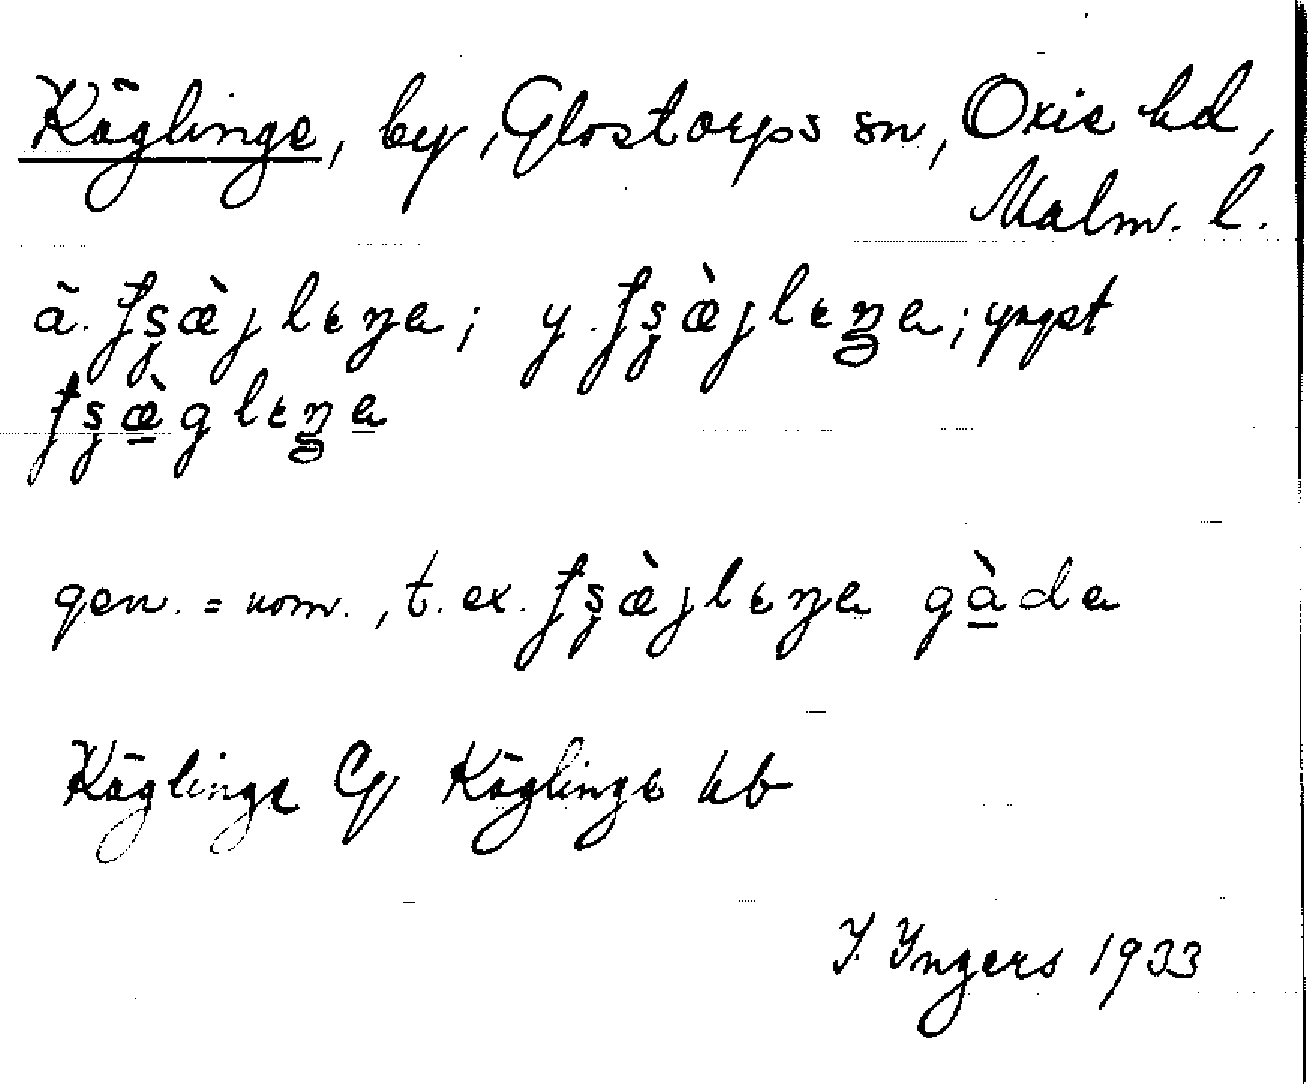 Käglinge, by, Glostorps sn, Oxie hd,
Malm. l.
ä. ʃʂæ̀jlɩŋa; y. ʃʂæ̀jlɩŋa; yngst
ʃʂæ̀glɩŋa
gen. = nom., t. ex. ʃʂæ̀jlɩŋa gàda
Käglinge Gp Käglinge hb
I. Ingers 1933